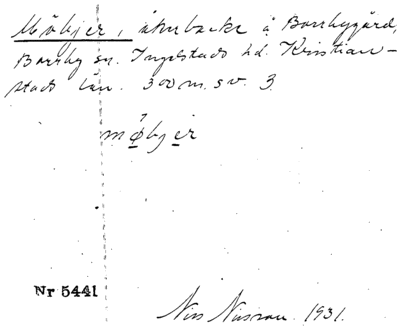 Möbjer, åkerbacke å Borrbygård,
Borrby sn. Ingelstads hd. Kristian-
stads län. 300 m. s v. 3
møbjer
Nr 5441
Nils Nilsson. 1931.